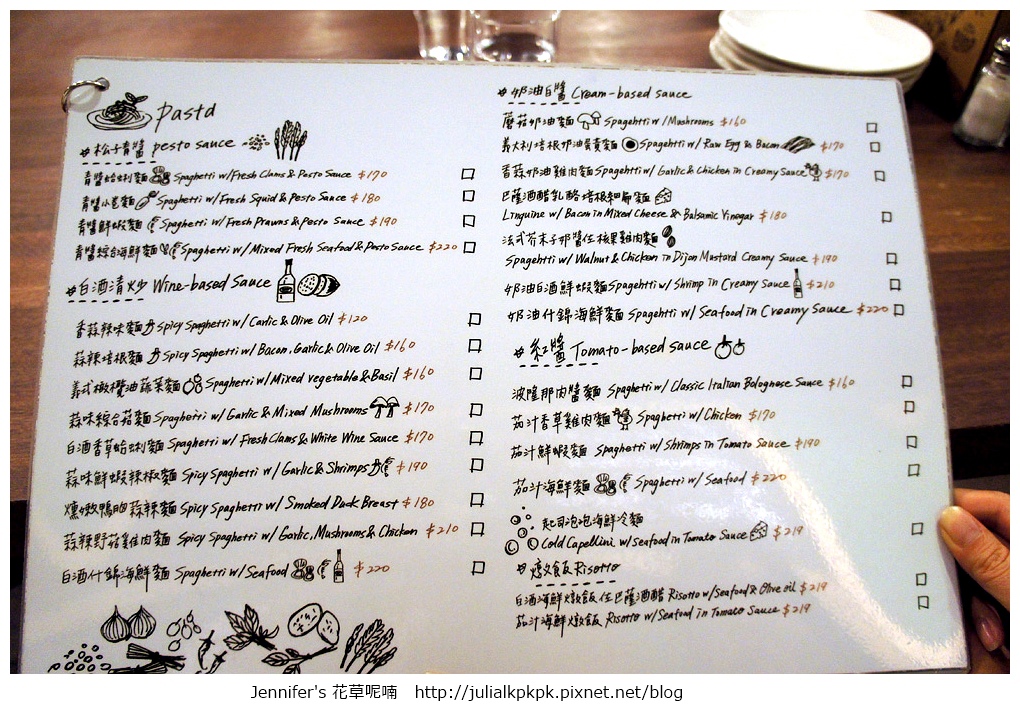 Pasta
松子青醬 pesto sauce
青醬蛤蜊麵 Spaghetti w/Fresh Clams & Pesto Sauce $170
青醬小卷麵 Spaghetti w/Fresh Squid & Pesto Sauce $180
青醬鮮蝦麵 Spaghetti w/Fresh Prawns & Pesto Sauce $190
青醬綜合海鮮麵 Spaghetti w/Mixed Fresh Seafood & Pesto Sauce $220
白酒清炒 Wine-based Sauce
香蒜辣味麵 Spicy Spaghetti w/ Garlic & Olive Oil $120
蒜辣培根麵 Spicy Spaghetti w/ Bacon, Garlic & Olive Oil $160
義式橄欖油蔬菜麵 Spaghetti w/Mixed Vegetable & Basil $160
蒜味綜合菇麵 Spaghetti w/ Garlic & Mixed Mushrooms $170
白酒香草蛤蜊麵 Spaghetti w/ Fresh Clams & White Wine Sauce $170
蒜味鮮蝦辣椒麵 Spicy Spaghetti w/ Garlic & Shrimps $190
燻嫩鴨胸蒜辣麵 Spicy Spaghetti w/ Smoked Duck Breast $180
蒜辣野菇雞肉麵 Spicy Spaghetti w/ Garlic, Mushrooms & Chicken $210
白酒什錦海鮮麵 Spaghetti w/Seafood $220
奶油白醬 Cream-based sauce
蘑菇奶油麵 Spagehtti w/Mushrooms $160
義大利培根奶油蛋黃麵 Spagehtti w/ Raw Egg & Bacon $170
香蒜奶油雞肉麵 Spagehtti w/ Garlic & Chicken in Creamy Sauce $170
巴薩酒醋乳酪培根細扁麵
Linguine w/ Bacon in Mixed Cheese & Balsamic Vinegar $180
法式芥末子奶醬佐核果雞肉麵
Spagehtti w/ Walnut & Chicken in Dijon Mustard Creamy Sauce $190
奶油白酒鮮蝦麵 Spagehtti w/ Shrimp in Creamy Sauce $210
奶油什錦海鮮麵 Spagehtti w/ Seafood in Creamy Sauce $220
紅醬 Tomato-based sauce
波隆那肉醬麵 Spaghetti w/ Classic Italian Bolognese Sauce $160
茄汁香草雞肉麵 Spaghetti w/Chicken $170
茄汁鮮蝦麵 Spaghetti w/ Shrimps in Tomato Sauce $190
茄汁海鮮麵 Spaghetti w/ Seafood $220
起司泡泡海鮮冷麵
Cold Capellini w/Seafood in Tomato Sauce $219
燉飯 Risotto
白酒海鮮燉飯佐巴薩酒醋 Risotto w/Seafood & Olive oil $219
茄汁海鮮燉飯 Risotto w/Seafood in Tomato Sauce $219
Jennifer's 花草呢喃 http://julialkpkpk.pixnet.net/blog